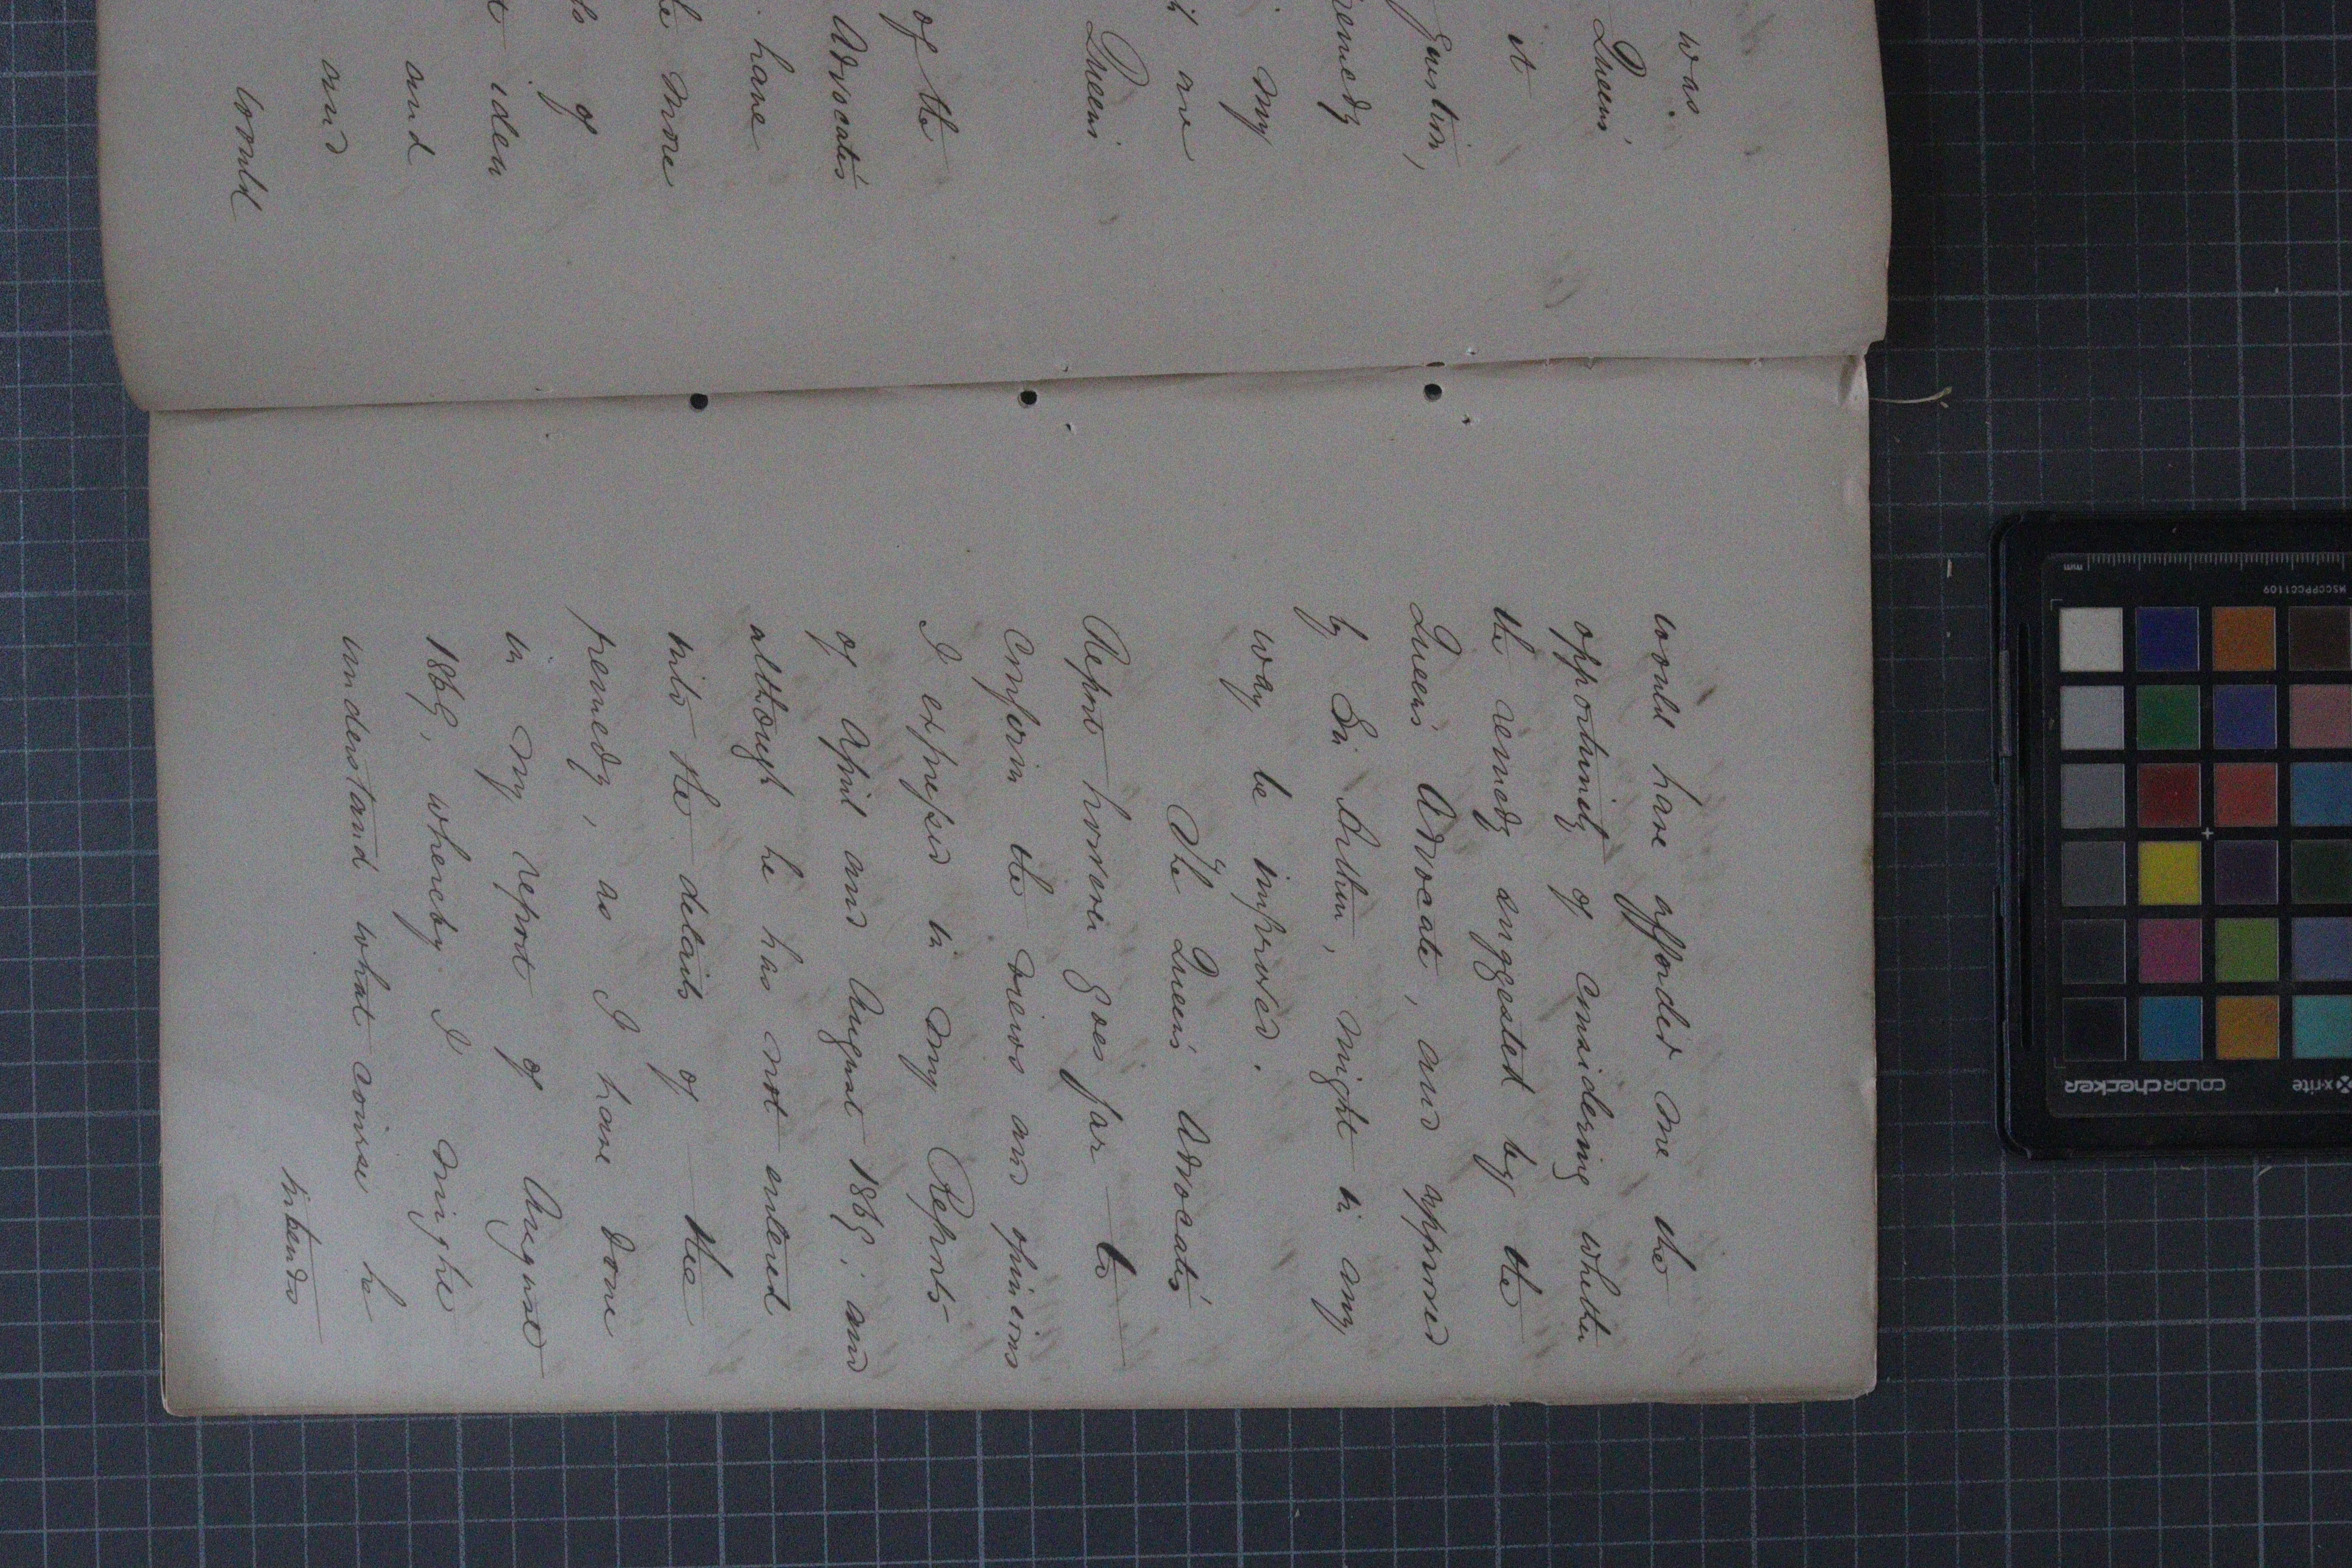 was
Queen's
it
question,
remedy
my
are
Queen's
of the
Advocate's
have
the more
of
iden
and
and
would
would have afforded me the
opportunity of considering whether
the remedy suggested by the
Queen's Advocate, and approved
by Sir Arthur, might in any
way be improved.
The Queen's Advocate's
Report however goes far to
confirm the views and opinions
I expressed in my Reports
of April and August 1865; and
although he has not entered
into the details of the
remedy, as I have done
in my report of August
1865, whereby I might
understand what course he
intends
mm
MSCCPPCC1109
colorchecker x-rite